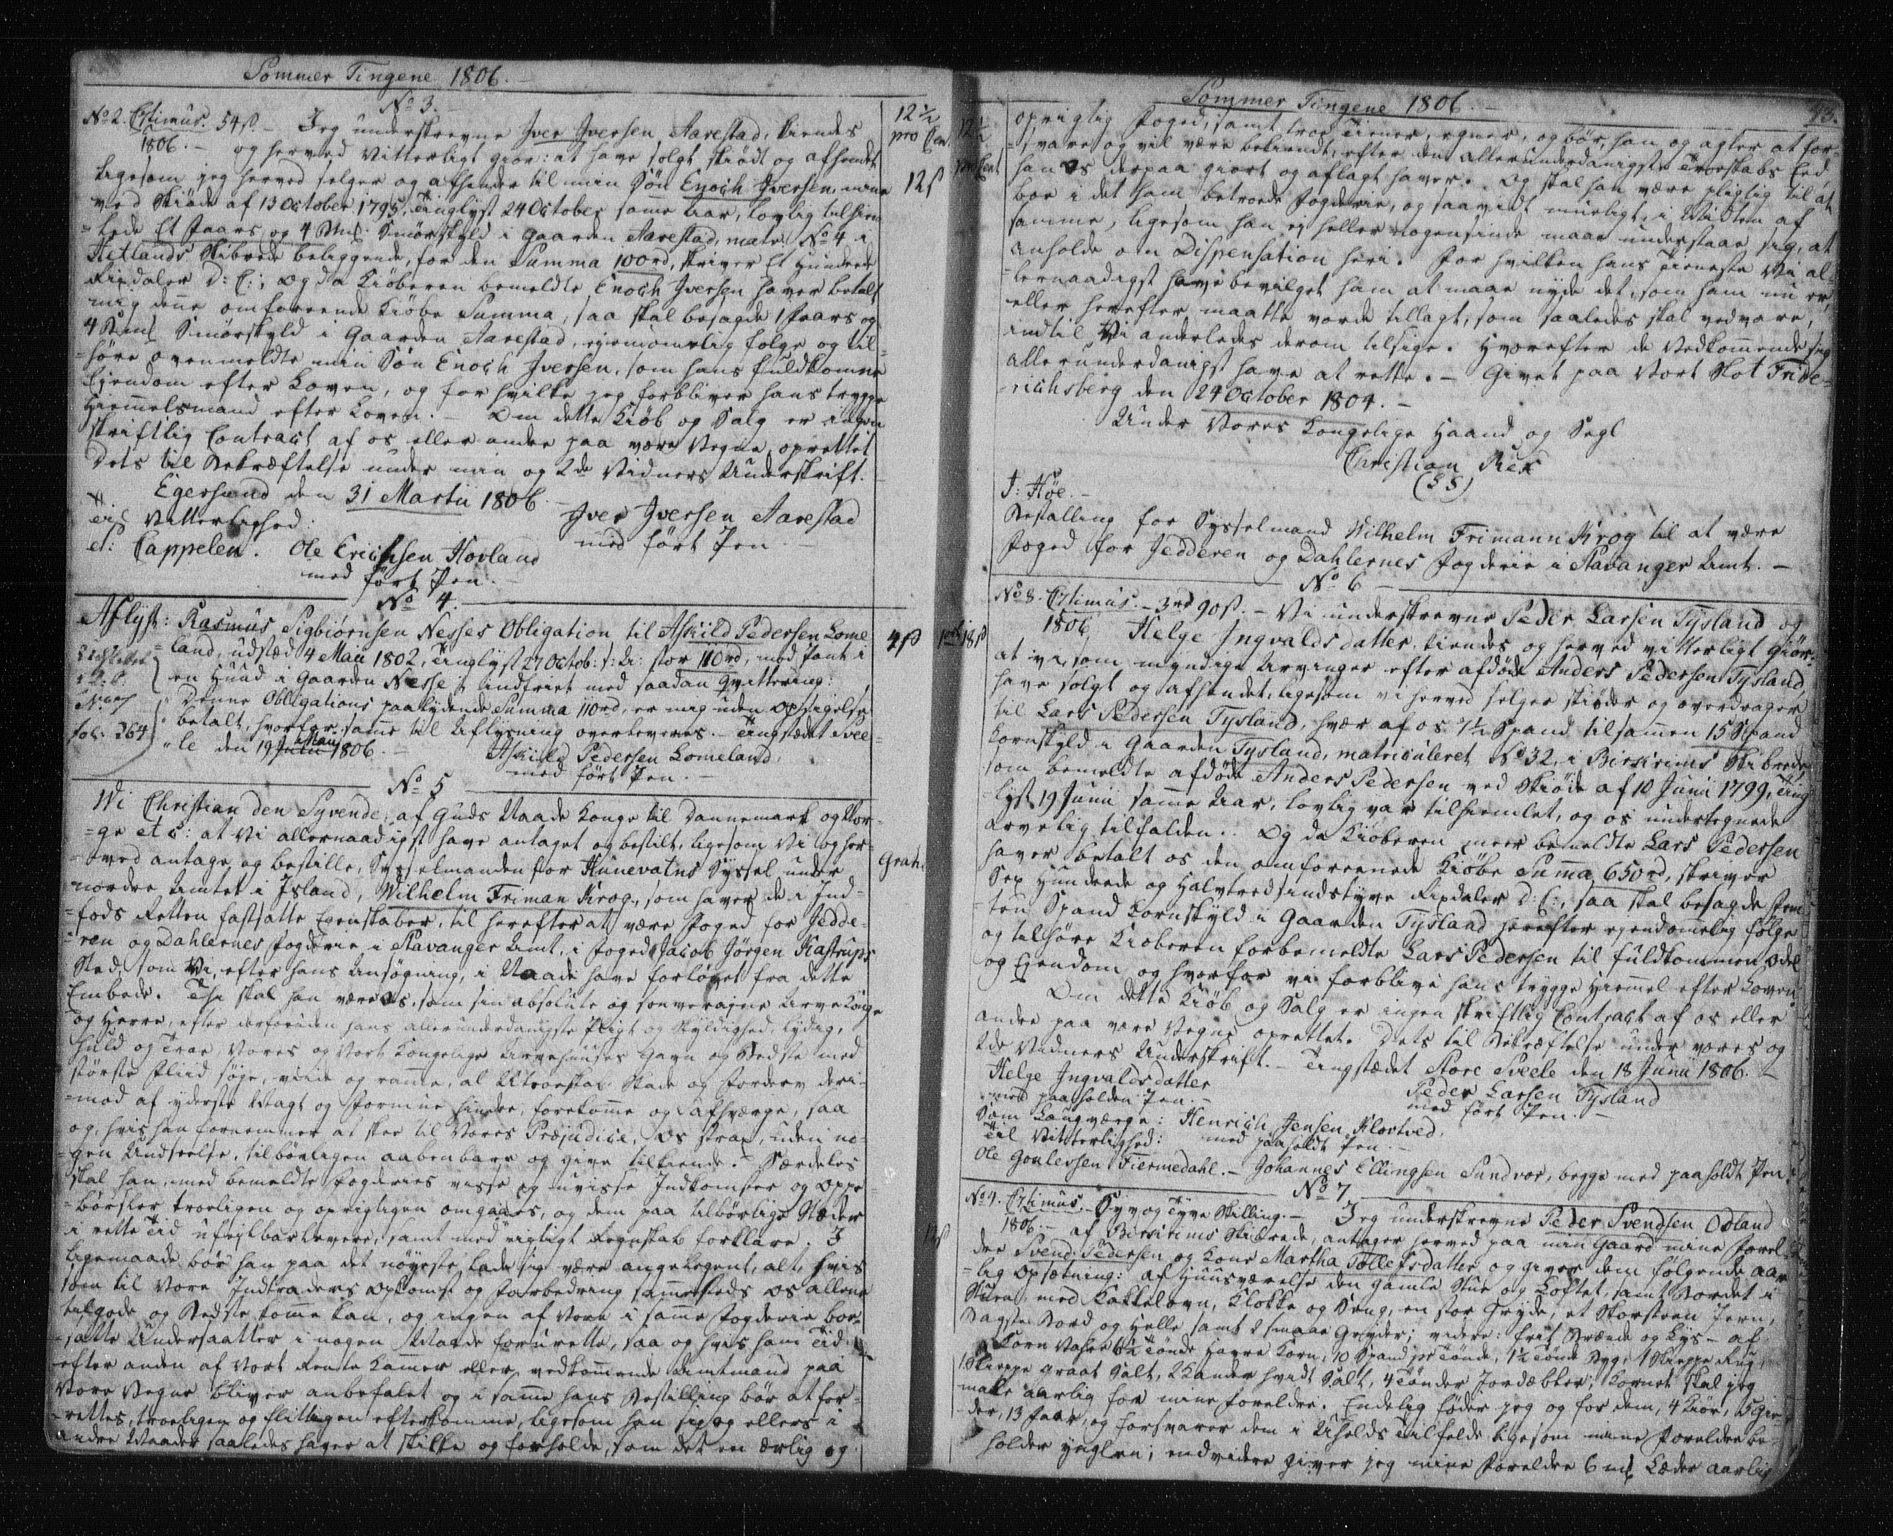 Sommer Tingene 1806.
No 3.
No 2. Cstimus. 54ß. Jeg underskrevne Jver Jversen Aarestad, kiendes
1806. og herved Vitterligt giør: at have solgt, skiødt og afhendet,
ligesom jeg herved selger og afhender til min Søn Enoch Jversen, mine
ved Skiøde af 13 October 1795, Tinglyst 24 October samme Aar, lovlig tilhiem-
-lede Et Faars, og 4 Smørskyld i Gaarden Aarestad, matr. No 4 i
Hetlands Skibrede beliggende, for den Summa 100rd, skriver Et Hundrede
Rixdaler D: C:, og da Kiøberen bemeldte Enoch Jversen haver betalt
mig denne omforeende Kiøbe Summa, saa skal besagde 1 Faars og
4 Smørskyld i Gaarden Aarestad, ejendomelig følge og til-
-høre ovenmeldte min Søn Enoch Jversen, som hans fuldkomne
Ejendom efter Loven, og for hvilke jeg forbliver hans trygge
Hiemmelsmand efter Loven. Om dette Kiøb og Salg er ingen
skriftlig Contract af os eller andre paa vore Vegne oprettet
Dets til Bekræftelse under min og 2de Vidners Underskrift.
Egersund den 31 Martii 1806.
Til Vitterlighed: Jver Jversen Aarestad
Cappelen. Ole Erichsen Hovland med ført Pen.
med ført Pen.
12½
pro Cent
12ß
No 4.
Aflyst: Rasmus Sigbiørnsen Nesses Obligation til Askild Pedersen Lome
land, udstæd 4 Maii 1802, Tinglyst 27 Octob: stor 110rd, med Pant i
en Huud i Gaarden Nesse, indfriet med saadan Qvittering:
Denne Obligations paalydende Summa 110rd, er mig uden opsigelse
fol. 264 betalt, hvorfor samme til Aflysning overleveres. Tingstædet Svee-
le den 19 Maii 1806. Askild Pedersen Lomeland
med ført Pen.
4ß
No 5
Wi Christian den Syvende, af Guds Naade Konge til Dannemark og Nor-
-ge etc: at Vi allernaadigst have antaget og bestilt, ligesom Vi og her-
-ved antage og bestille, Sysselmanden for Hunevatns Syssel under
nordre Amtet i Jsland, Wilhelm Friman Krog, som haver de i Jnd-
-føds Retten fastsatte Egenskaber, til herefter at være Foged for Jedde-
-ren og Dahlernes Fogderie i Stavanger Amt, i Foged Jacob Jørgen Kastrups
Sted, som Vi, efter hans Ansøgning, i Naade have forløvet fra dette
Embede. Thi skal han være Os, som sin absolute og souveraine Arve Konge
og Herre, efter derforuden hans allerunderdanigste Pligt og Skyldighed, lydig,
huld og troe, Vores og Vort Kongelige Arvehuuses Gavn og Bedste med
største Fliid søge, viide og ramme, al Utroeskab Skade og Forderv deri-
-mod af yderste Magt og Formue hindre, forekomme og afhværge, saa
og, hvis han fornemmer at skee til Vores Præjudice, Os strax, uden no-
gen Undseelse, tilbørligen aabenbare og give tilkiende. Særdeles
skal han, med bemeldte Fogderies visse og uvisse Indkomster og Oppe-
-børsler troeligen og oprigtigen omgaaes, og dem paa tilbørlige Stæder
i rette Tid ufejlbar levere, samt med rigtigt Regnskab forklare.
Ligemaade bør han paa det nøyeste lade sig være angelegent, alt, hvis
som til Vore Indtraders Opkomst og Forbedring sammesteds Os allene
tilgode og Bedste komme kan, og ingen af Vore i samme Fogderie bo-
satte Undersaatter i nogen Maade forurette, saa og hvis ham Tid
efter anden af Vort Rente Kamer eller vedkommende Amtmand paa
Vore Vegne bliver anbefalet og i samme hans Bestilling bør at for-
rettes, troeligen og flittigen efterkomme, ligesom han sig og ellers i
andre Maader saaledes haver at skikke og forholde, som det en ærlig og
Gratis
Sommer Tingene 1806. 93.
oprigtig Foged, samt troe Tiener, egner, og bør, han og agter at for-
-svare og vil være bekiendt, efter den allerunderdanigste Troeskabs Eed
han Os derpaa giort og aflagt haver. Og skal han være pligtig til at
boe i det ham betroede Fogderie, og saavidt mueligt, i Midten af
samme, ligesom han ej heller nogensinde maae understaae sig, at
anholde om Dispensation heri. For hvilken hans Tieneste Vi al-
-lernaadigst have bevilget ham at maae nyde det, som ham nu er,
eller herefter maatte vorde tillagt, som saaledes skal vedvare,
indtil Vi anderledes derom tilsige. Hvorefter de Vedkommende sig
allerunderdanigst have at rette. Givet paa Vort Slot Fride-
-richsberg den 24 October 1804.
Under Vores Kongelige Haand og Segl
Christian Rex
(LS)
Høe.
Bestalling for Sysselmand Wilhelm Frimann Krog til at være
Foged for Jedderen og Dahlernes Fogderie i Stavanger Amt.
12½
pro Cent
No 6
No 8. Cstimus. 3rd 90ß. Vi underskrevne Peder Larsen Tysland og
1806. Helge Jngvaldsdatter, kiendes og herved vitterligt Giør:
at vi, som myndige Arvinger efter afdøde Anders Pedersen Tysland,
have solgt og afhendet, ligesom vi herved selger skiøder og overdrager
til Lars Pedersen Tysland, hver af os 7½ Spand tilsammen 15 Spand
Kornskyld i Gaarden Tysland, matriculeret No 32, i Birkrims Skibrede
som bemeldte afdøde Anders Pedersen ved Skiøde af 10 Junii 1799, Ting
lyst 19 Junii samme Aar, lovlig var tilhiemlet, og os undertegnede
arvelig tilfalden. Og da Kiøberen meer bemeldte Lars Pedersen
haver betalt os den omforeenede Kiøbe Summa 650rd, skriver
Sex Hundrede og Halvtredsindstyve Rixdaler D: C:, saa skal besagde Fem
ten Spand Kornskyld i Gaarden Tysland herefter ejendomelig følge
og tilhøre Kiøberen forbemeldte Lars Pedersen til fuldkommen Odel
og Ejendom og hvorfor vi forblive hans trygge Hiemmel efter Loven.
Om dette Kiøb og Salg er ingen skriftlig Contract af os eller
andre paa vore Vegne oprettet. Dets til Bekræftelse under vores og
2de Vidners Underskrift. Tingstædet Store Sveele den 18 Junii 1806.
Helge Jngvaldsdatter Peder Larsen Tysland
med paaholden Pen. med ført Pen.
Som Laugværge: Henrich Jensen Klovtved.
Til Vitterlighed: med paaholdt Pen
Ole Goulessen Fiermedahl. Johannes Ellingsen Sundvor, begge med paaholdt Pen
18ß
No 7
No 4. Cstimus. Syv og Tyve Skilling. Jeg underskrevne Peder Svendsen Odland
1806. af Birkrims Skibrede, antager herved paa min Gaard mine Forel-
dre Svend Pedersen og Kone Martha Tollefsdatter og giver dem følgende aar
lig opsætning: af Huusværelse den gamle Stue og Loftet, samt Bordet i
Stuen, med Kakkelovn, Klokke og Seng, en stor Gryde, et Skorsteen Jern,
Bagste Bord og Helle samt 2 smaae Gryder; videre: frit Brænde og Lys af
Korn Vahre 6½ Tønde Havre Korn, 10 Spand pr Tønde, 1½ Tønde Byg, 1 Skieppe Rug,
1 Skieppe graat Salt, 2 Kander hvidt Salt, 4 Tønder Jordæbler; Kornet skal jeg
male aarlig for mine Foreldre. Endelig føder jeg og for dem, 4 Kiør, 15 Gie-
-der, 13 Faar, og forsvarer dem i Uhelds Tilfelde ligesom mine Foreldre be-
holder ynglen; endvidere giver jeg mine Foreldre 6 mk Læder aarlig
12ß